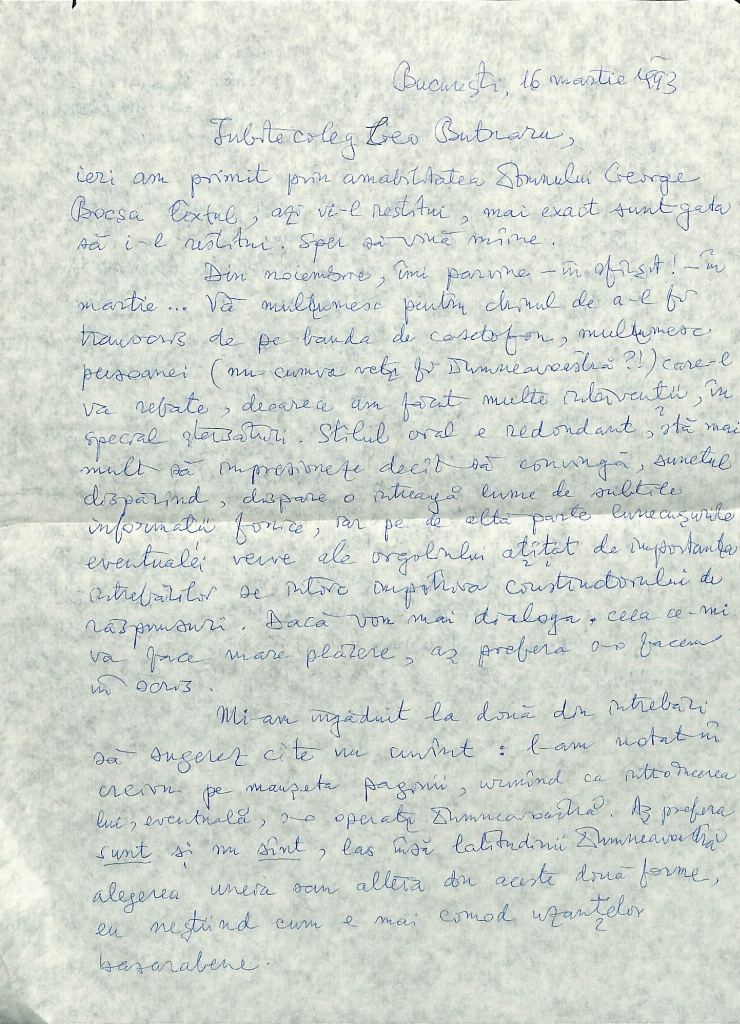 București, 16 martie 1993
Iubite coleg Leo Butnaru,
ieri am primit prin amabilitatea Domnului George
Bocșa textul, azi vi-l restitui, mai exact sunt gata
să i-l restitui. Sper să vină mîine.
Din noiembrie, îmi parvine – în sfîrșit! – în
martie... Vă mulțumesc pentru chinul de a-l fi
transcris de pe banda de casetofon, mulțumesc
persoanei (nu cumva veți fi Dumneavoastră?!) care-l
va rebate, deoarece am făcut multe intervenții, în
special ștersături. Stilul oral e redondant, stă mai
mult să impresioneze decît să convingă, sunetul
dispărînd, dispare o întreagă lume de subtile
informații fonice, iar pe de altă parte lunecușurile
eventualei verve ale orgoliului ațîțat de importanța
întrebărilor se întorc împotriva constructorului de
răspunsuri. Dacă vom mai dialoga, ceea ce-mi
va face mare plăcere, aș prefera s-o facem
în scris.
Mi-am îngăduit la două din întrebări
să sugerez cîte un cuvînt: l-am notat în
creion pe manșeta paginii, urmînd ca introducerea
lui, eventuală, s-o operați Dumneavoastră. Aș prefera
sunt și nu sînt, las însă latitudinii Dumneavoastră
alegerea uneia sau alteia din aceste două forme,
eu neștiind cum e mai comod uzanțelor
basarabene.